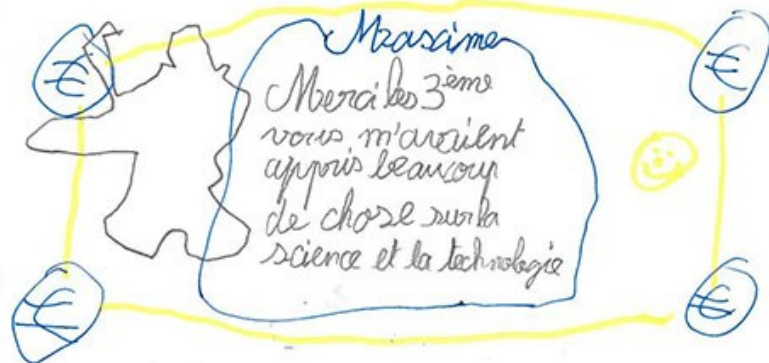 € €
Maxime
Merci les 3ème
vous m'avaient
appris beaucoup
de chose sur la
science et la technologie
€ €